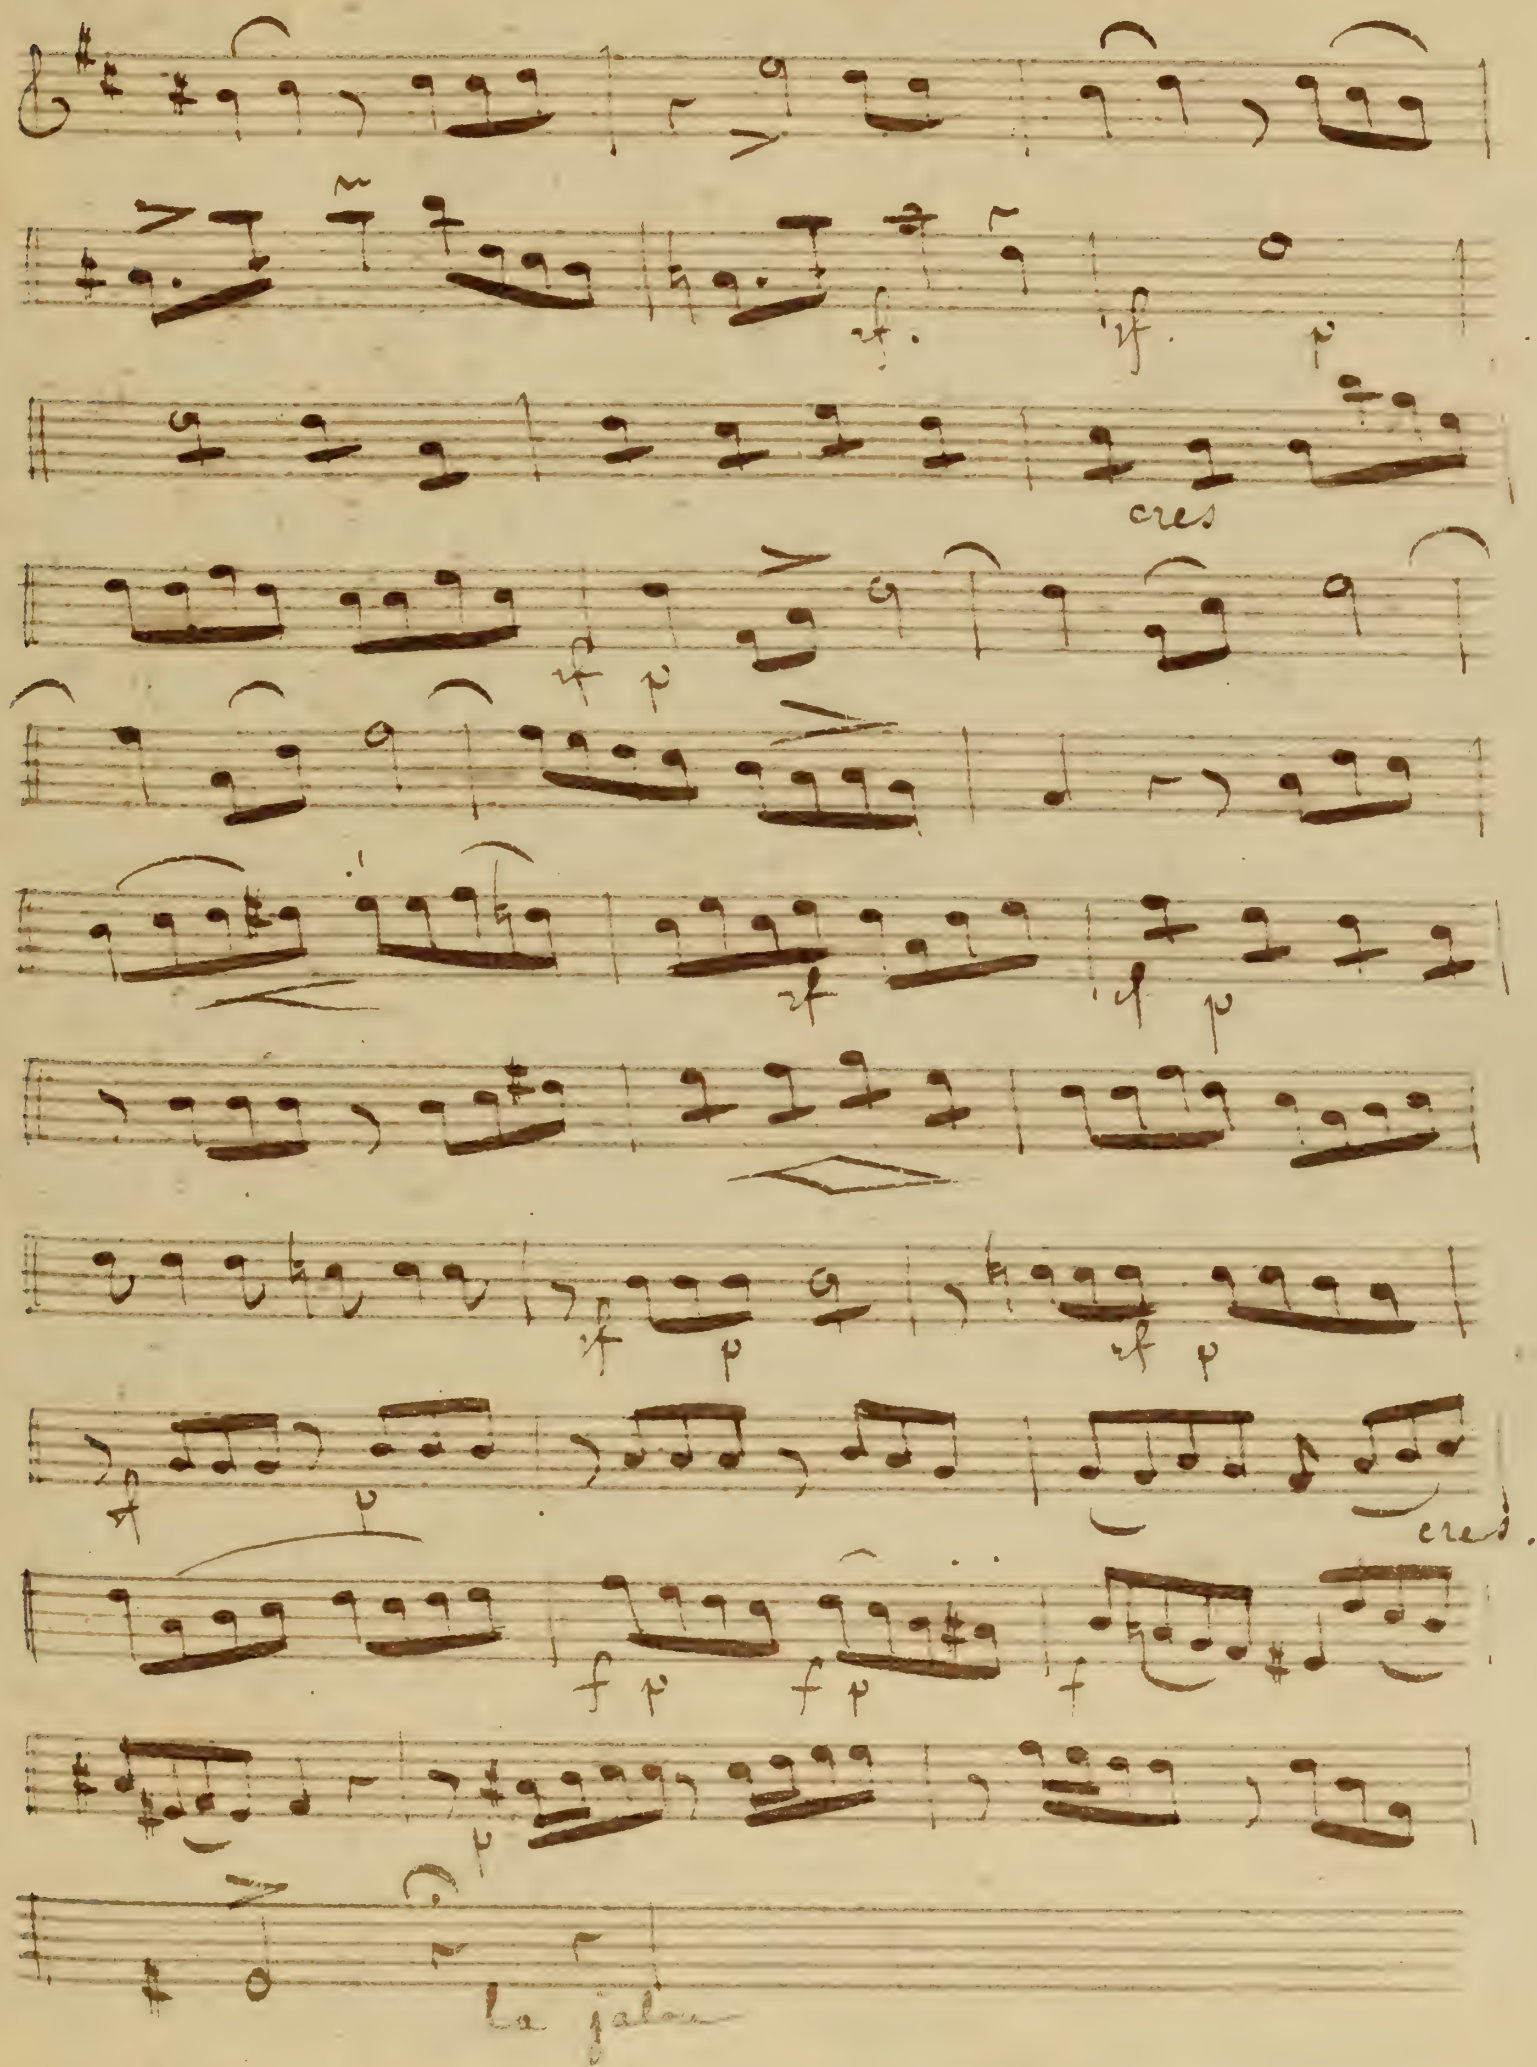 rf. rf. p
cres
rf p
rf rf p
rf p rf p
f p
cres.
f p f p f
p
La